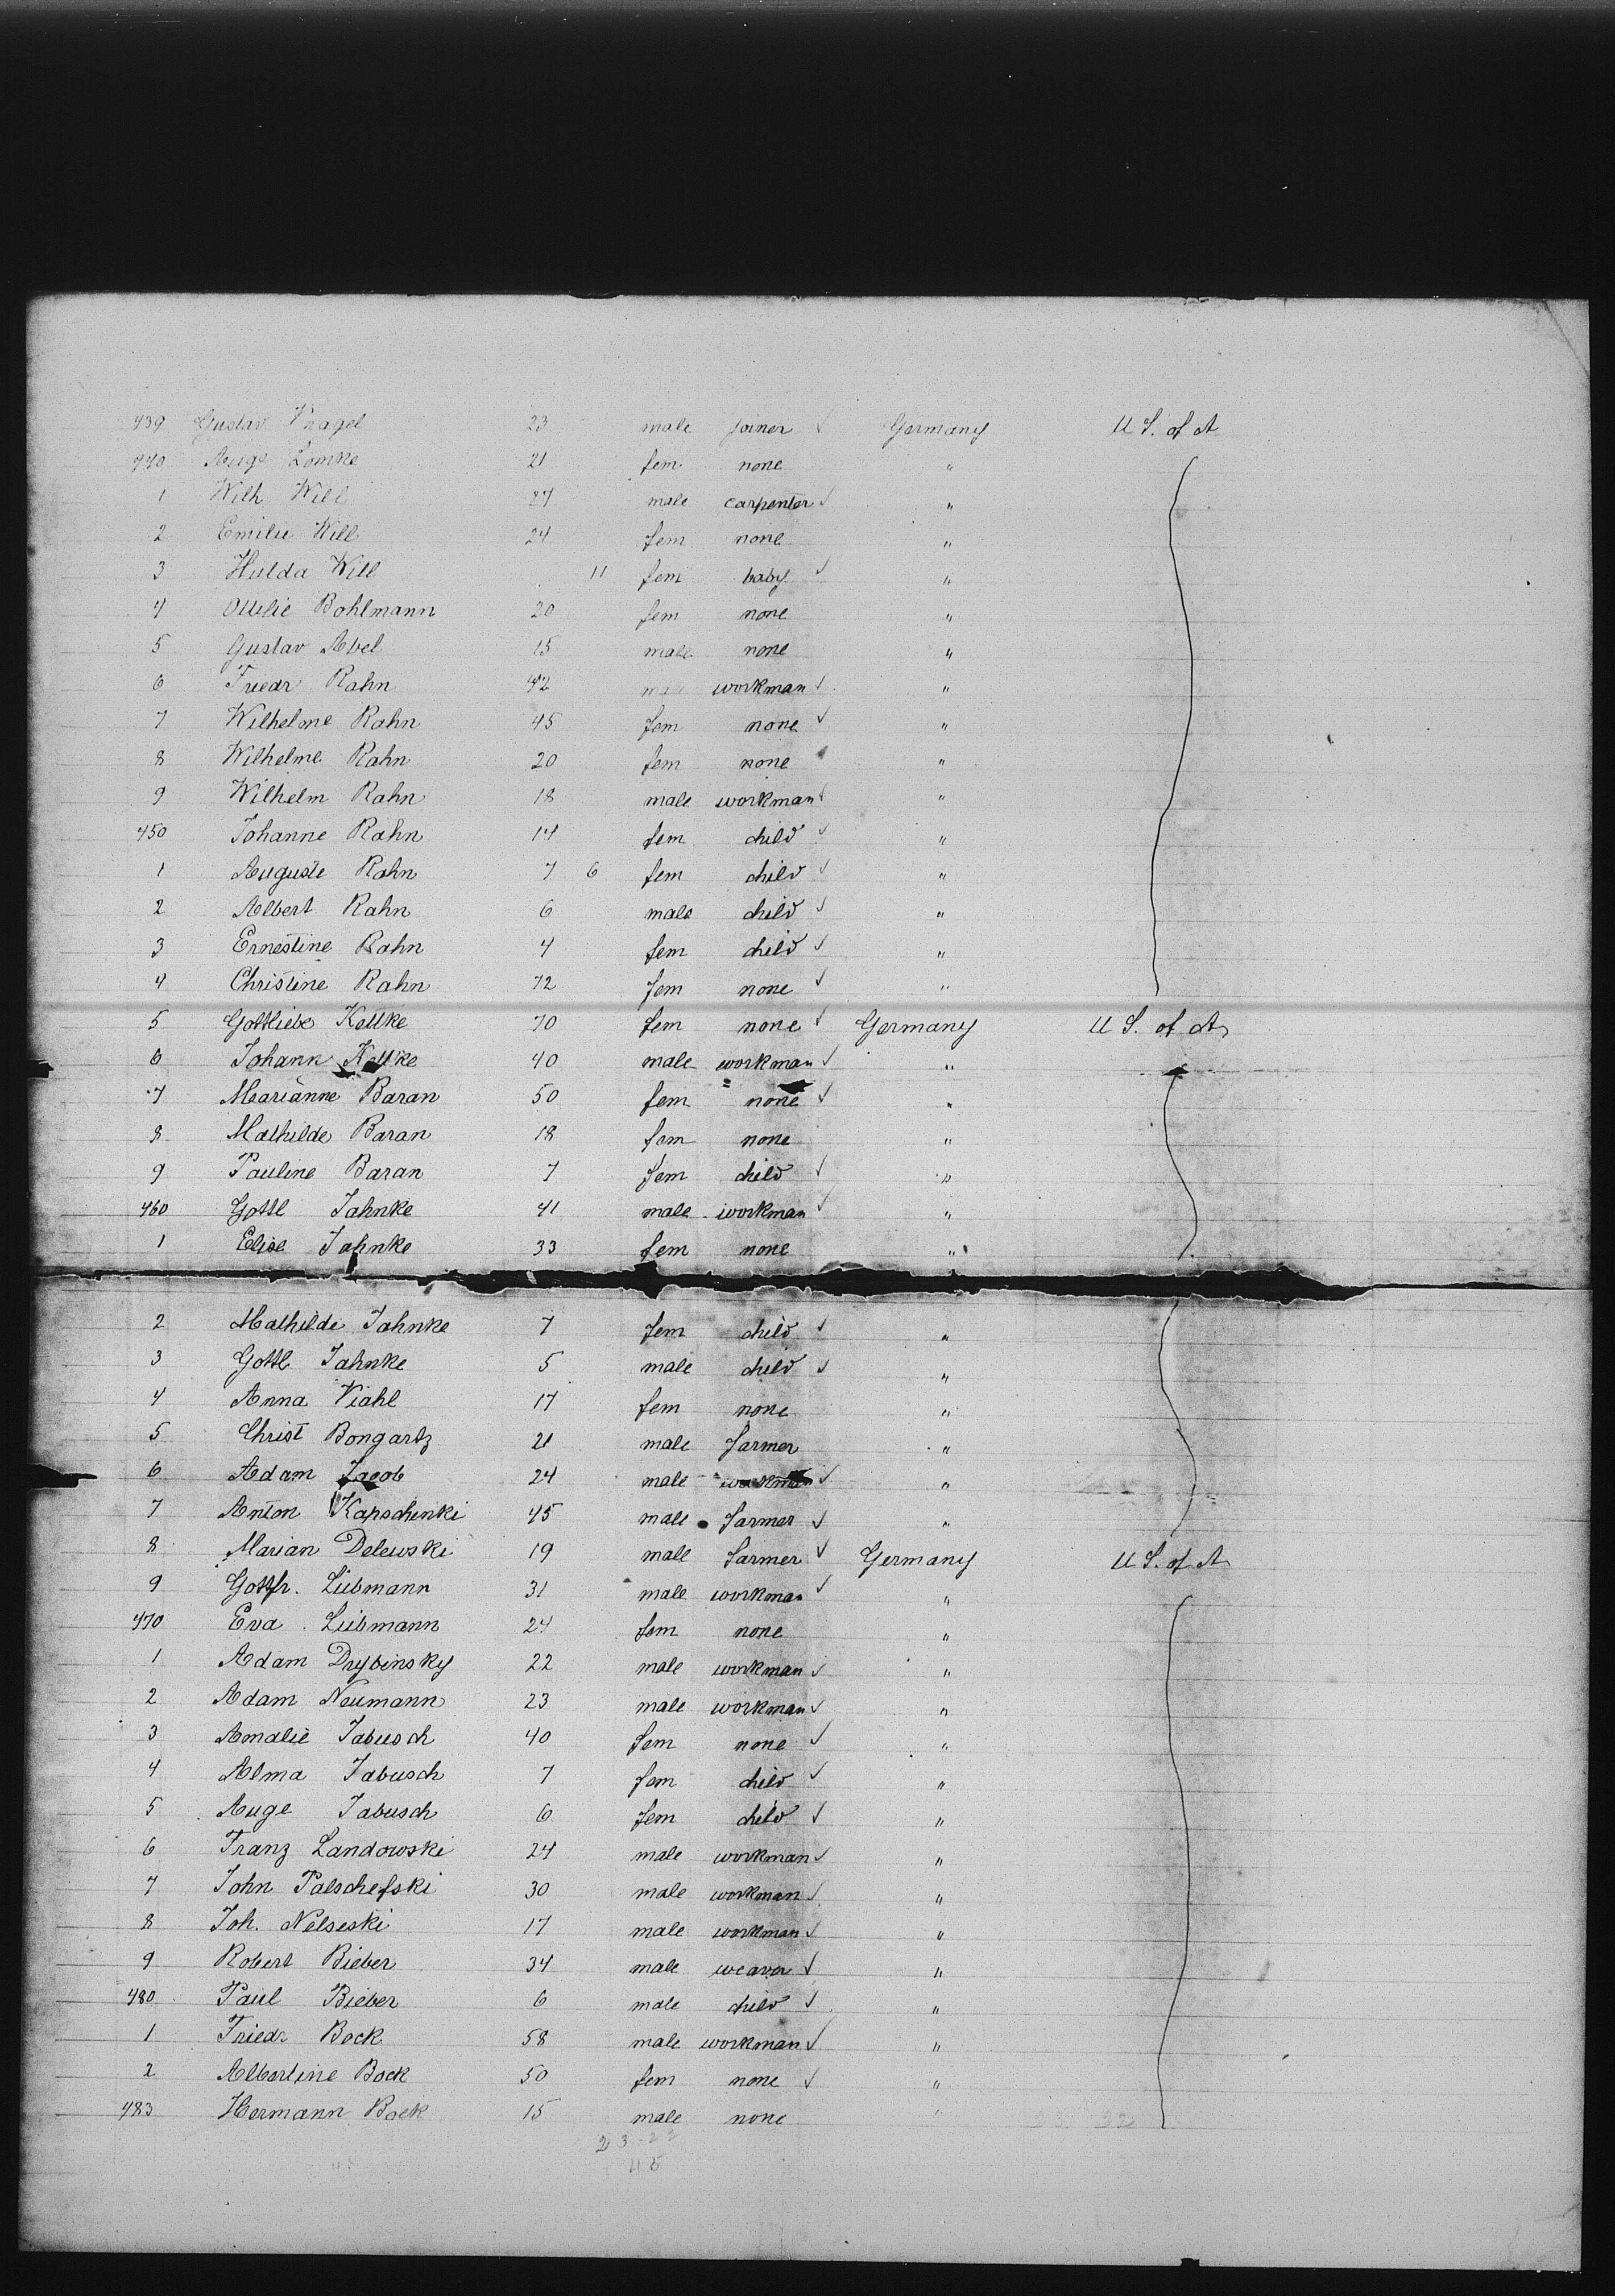 439 Gustav Pragel 23 male joiner ✓ Germany U S. of A
440 Auge Lomke 21 fem none "
1 Wilh Will 27 male carpenter ✓ "
2 Emilie Will 24 fem none "
3 Hulda Will 11 fem baby ✓ "
4 Ottilie Bohlmann 20 fem none "
5 Gustav Abel 15 male none "
6 Friedr Rahn 42 male workman ✓ "
7 Wilhelme Rahn 45 fem none ✓ "
8 Wilhelme Rahn 20 fem none "
9 Wilhelm Rahn 18 male workman ✓ "
450 Johanne Rahn 14 fem child ✓ "
1 Auguste Rahn 7 6 fem child ✓ "
2 Albert Rahn 6 male child ✓ "
3 Ernestine Rahn 4 fem child ✓ "
4 Christine Rahn 72 fem none ✓ "
5 Gottliebe Kellke 70 fem none ✓ Germany U S. of A
6 Johann Kellke 40 male workman ✓ "
7 Marianne Baran 50 fem none ✓ "
8 Mathilde Baran 18 fem none "
9 Pauline Baran 7 fem child ✓ "
460 Gottl Jahnke 41 male workman ✓ "
1 Elise Jahnke 33 fem none "
2 Mathilde Jahnke 7 fem child ✓ "
3 Gottl Jahnke 5 male child ✓ "
4 Anna Viahl 17 fem none "
5 Christ Bongartz 21 male farmer "
6 Adam Jacob 24 male workman ✓ "
7 Anton Kapschinki 45 male farmer ✓ "
8 Marian Delewski 19 male farmer ✓ Germany U S. of A
9 Gottfr. Liebmann 31 male workman ✓ "
470 Eva Liebmann 24 fem none "
1 Adam Drybinsky 22 male workman ✓ "
2 Adam Neumann 23 male workman ✓ "
3 Amalie Jabusch 40 fem none ✓ "
4 Alma Jabusch 7 fem child ✓ "
5 Auge Jabusch 6 fem child ✓ "
6 Franz Landowski 24 male workman ✓ "
7 John Palschefski 30 male workman ✓ "
8 Joh. Nelseski 17 male workman ✓ "
9 Robert Bieber 34 male weaver ✓ "
480 Paul Bieber 6 male child ✓ "
1 Friedr Bock 58 male workman ✓ "
2 Albertine Bock 50 fem none ✓ "
483 Hermann Bock 15 male none "
23 22
45